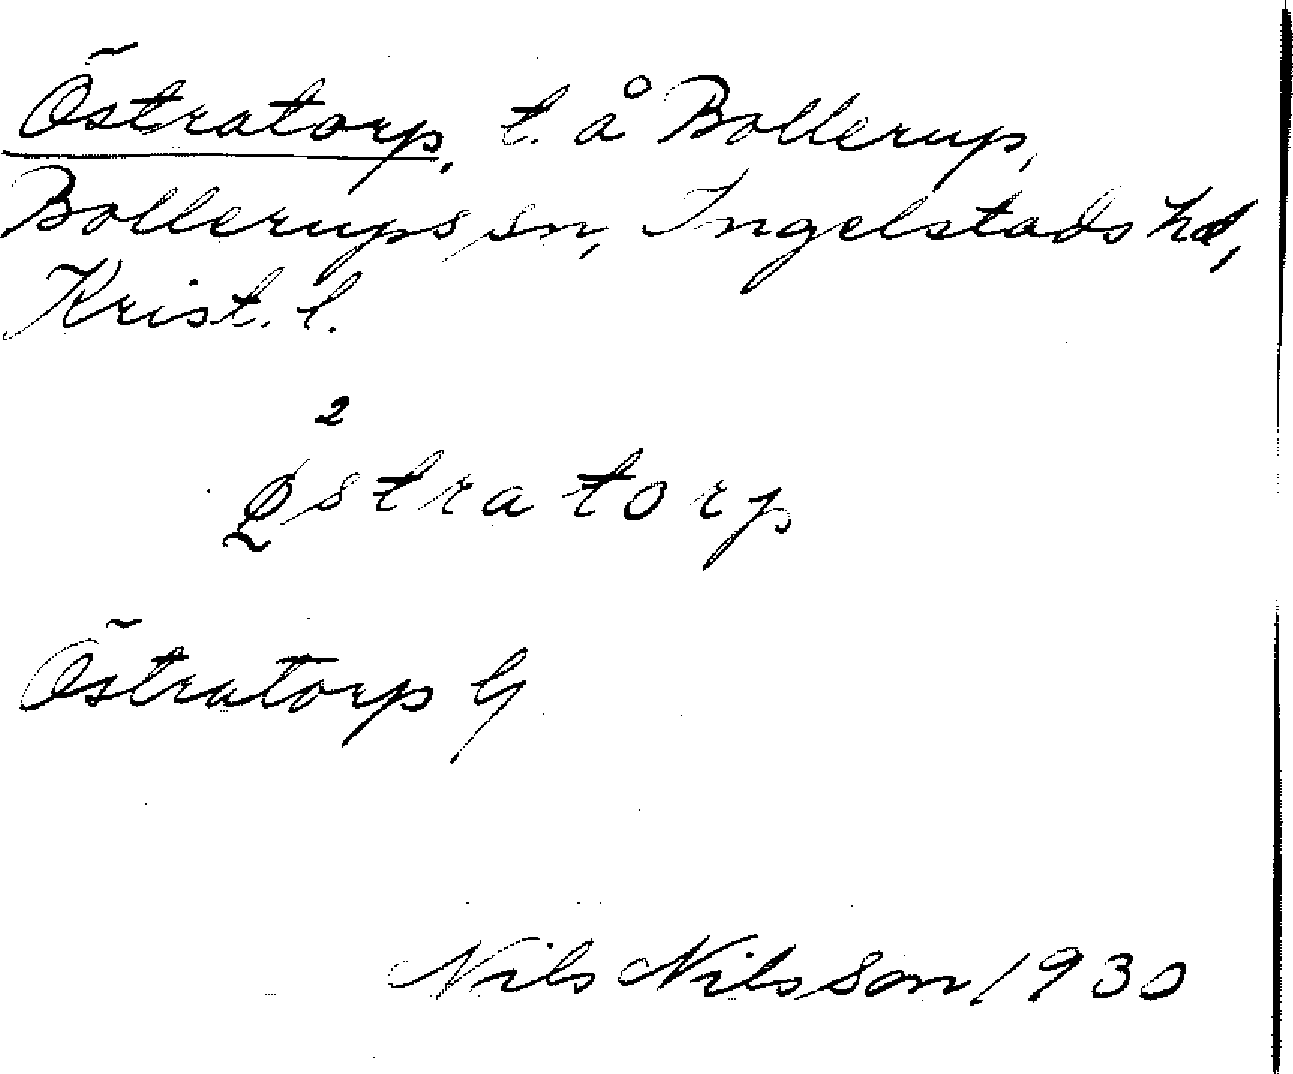 Östratorp, t. å Bollerup,
Bollerups sn, Ingelstads hd,
Krist. l.
2
østratorp
Östratorp G
Nils Nilsson 1930